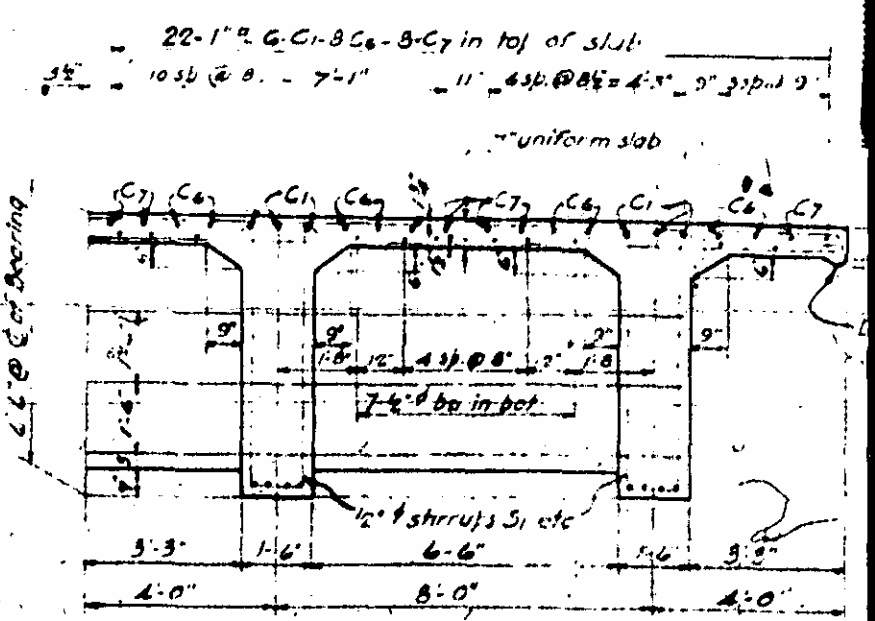 22-1"⌀ 6-C1-8 C6-8-C7 in top of slab
3½" 10 sp @ 8. - 7'-1" 11" 4 sp. @ 8½ = 4'-3" 9" 3 sp at 9"
7" uniform slab
C7 C6 C1 C6 C7 C6 C1 C6 C7
@ ℄ of Bearing
6 6 6
9" 9" 9" 9"
1'-8" 12" 4 sp. @ 8" 1'-8
7-½" ⌀ ba in bot
1'-6"
½" ⌀ stirrups S1 etc
3'-3" 1'-6" 6'-6" 1'-6" 3'-3"
4'-0" 8'-0" 4'-0"